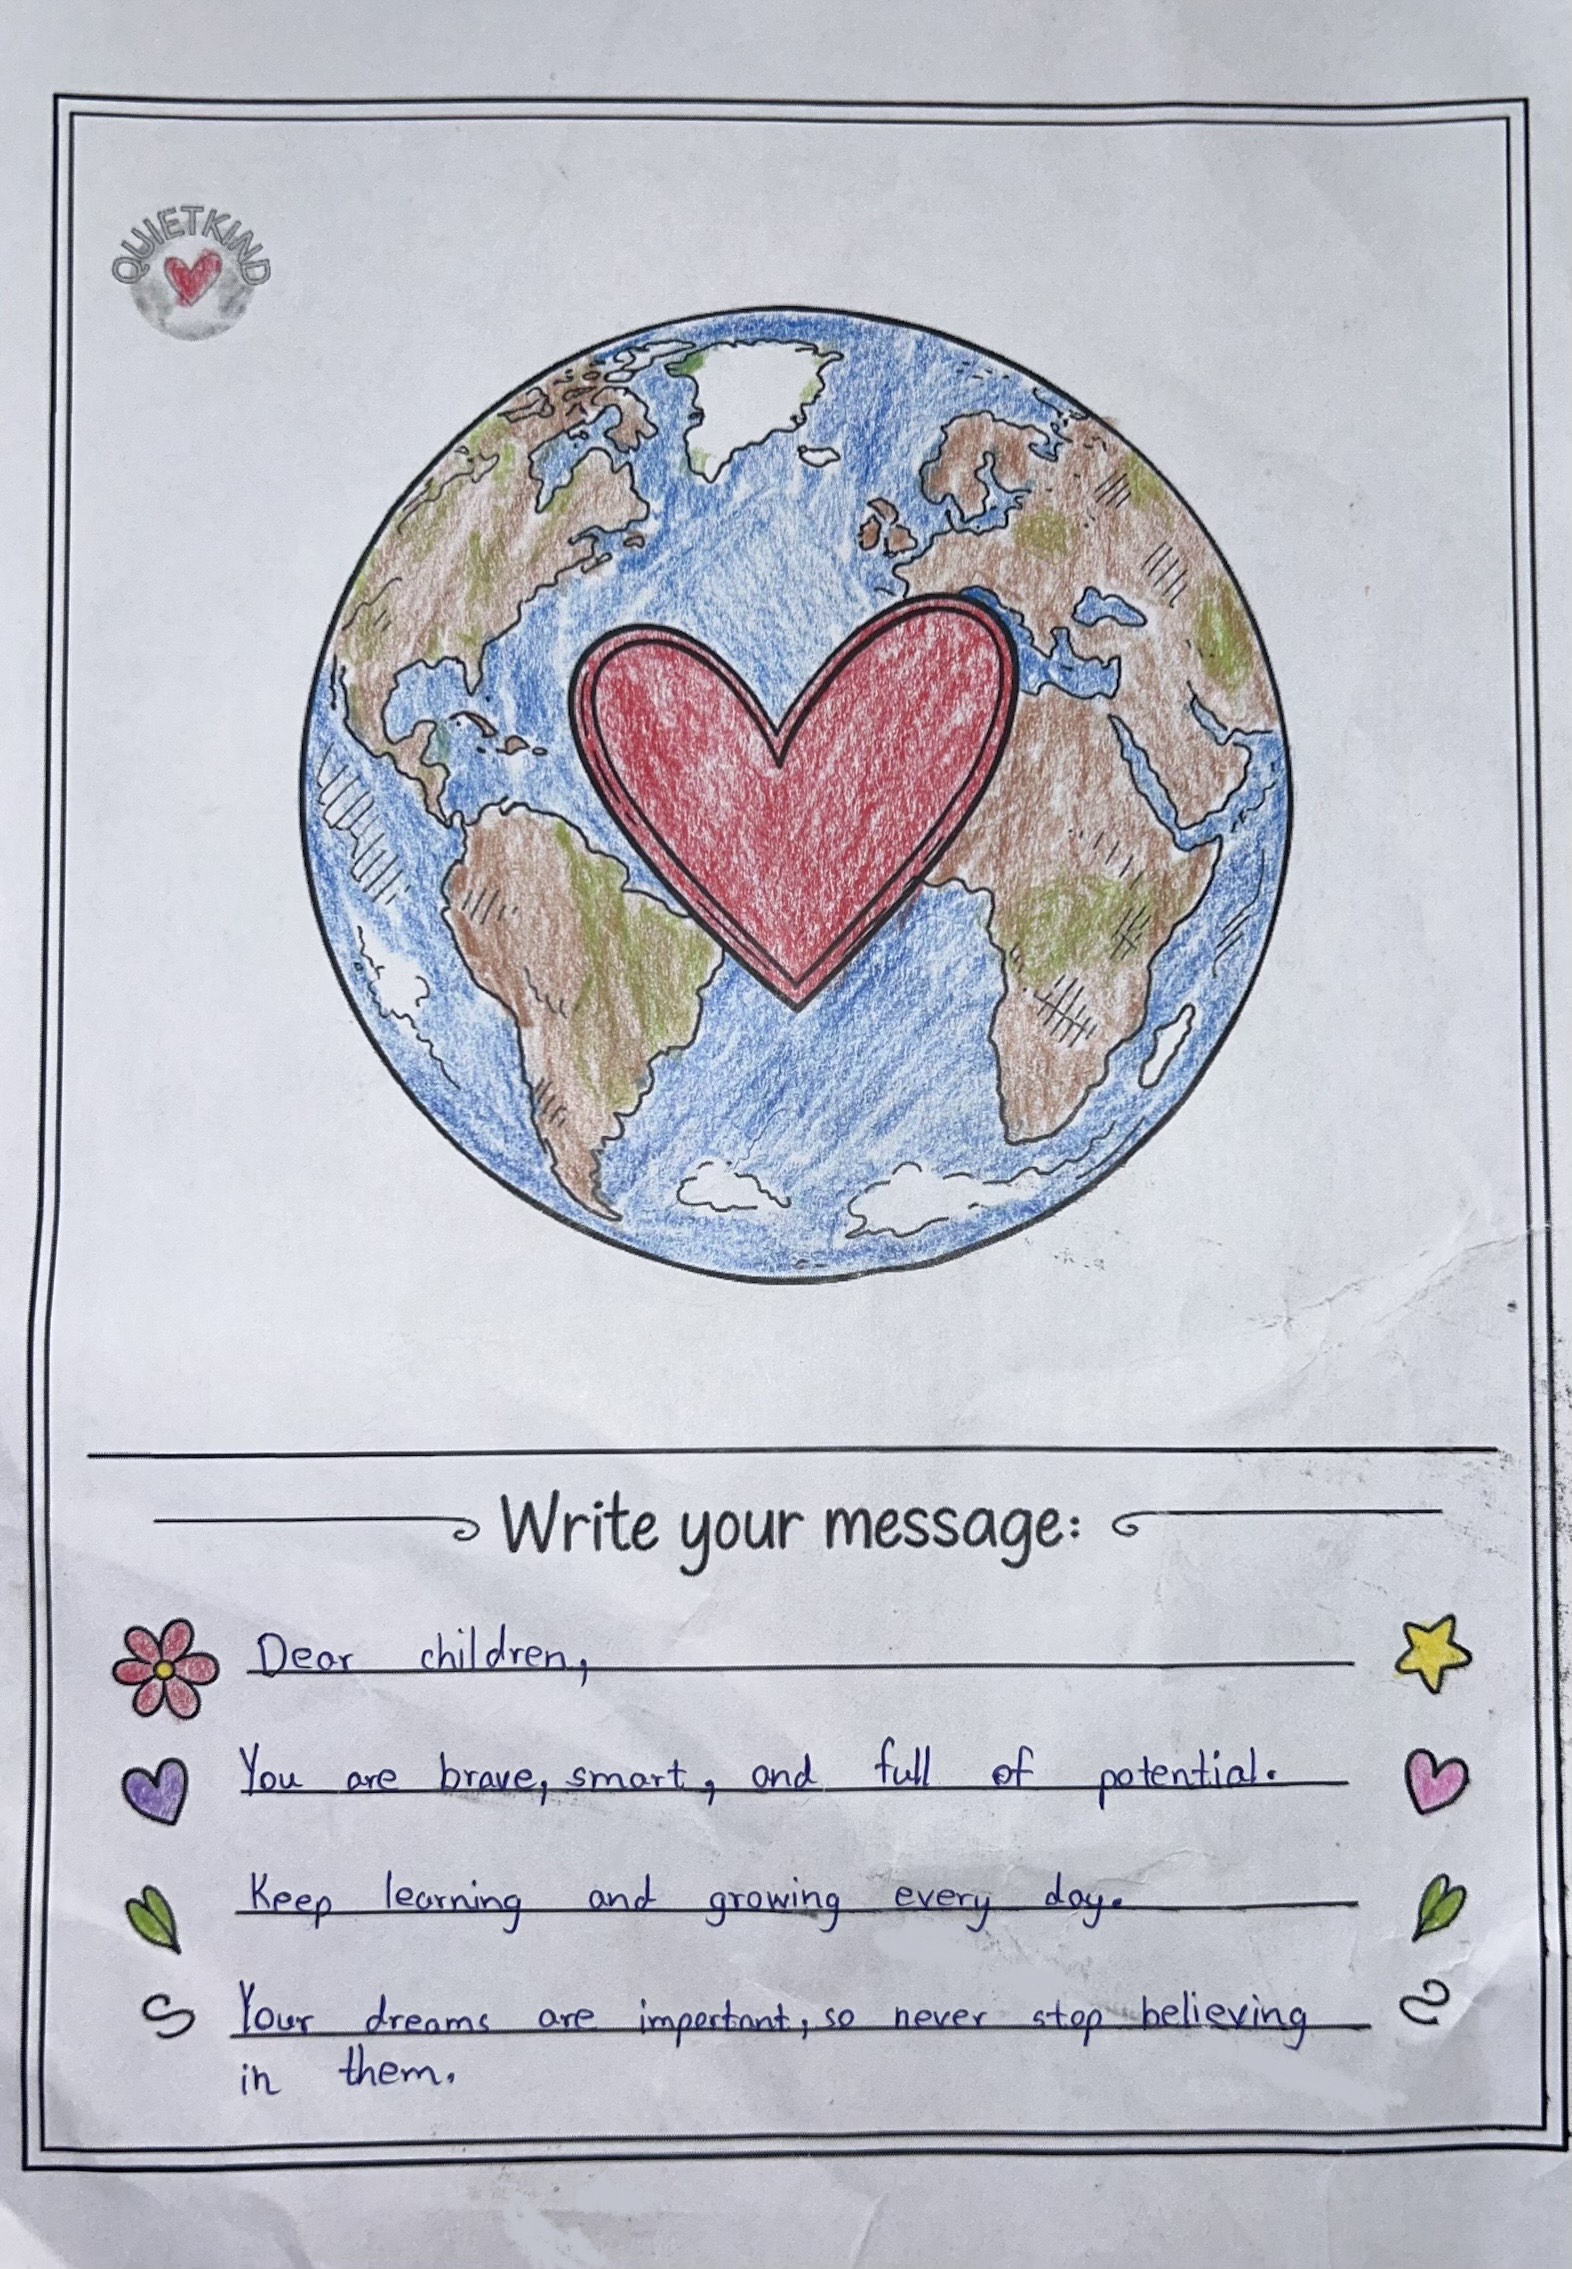 QUIETKIND
Write your message:
Dear children,
You are brave, smart, and full of potential.
Keep learning and growing every day.
Your dreams are important, so never stop believing
in them.